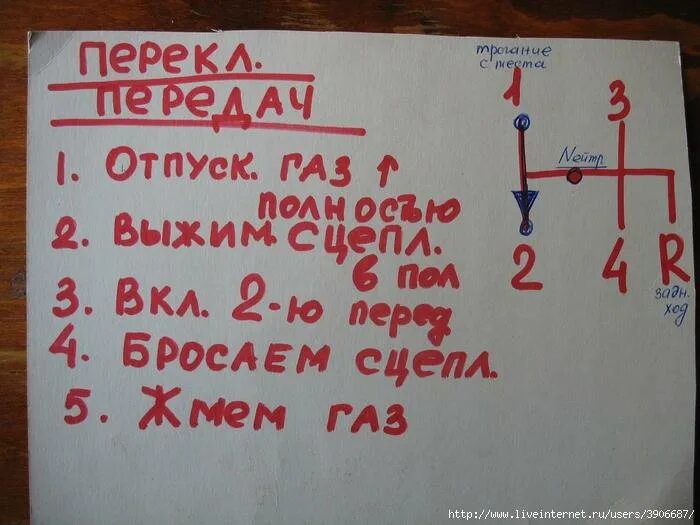 ПЕРЕКЛ.
ПЕРЕДАЧ
1. ОТПУСК. ГАЗ ↑
ПОЛНОСЪЮ
2. ВЫЖИМ. СЦЕПЛ.
В ПОЛ
3. ВКЛ. 2-Ю ПЕРЕД
4. БРОСАЕМ СЦЕПЛ.
5. ЖМЕМ ГАЗ
трогание
с места
1
3
Nейтр
2
4
R
задн.
ход
http://www.liveinternet.ru/users/3906687/